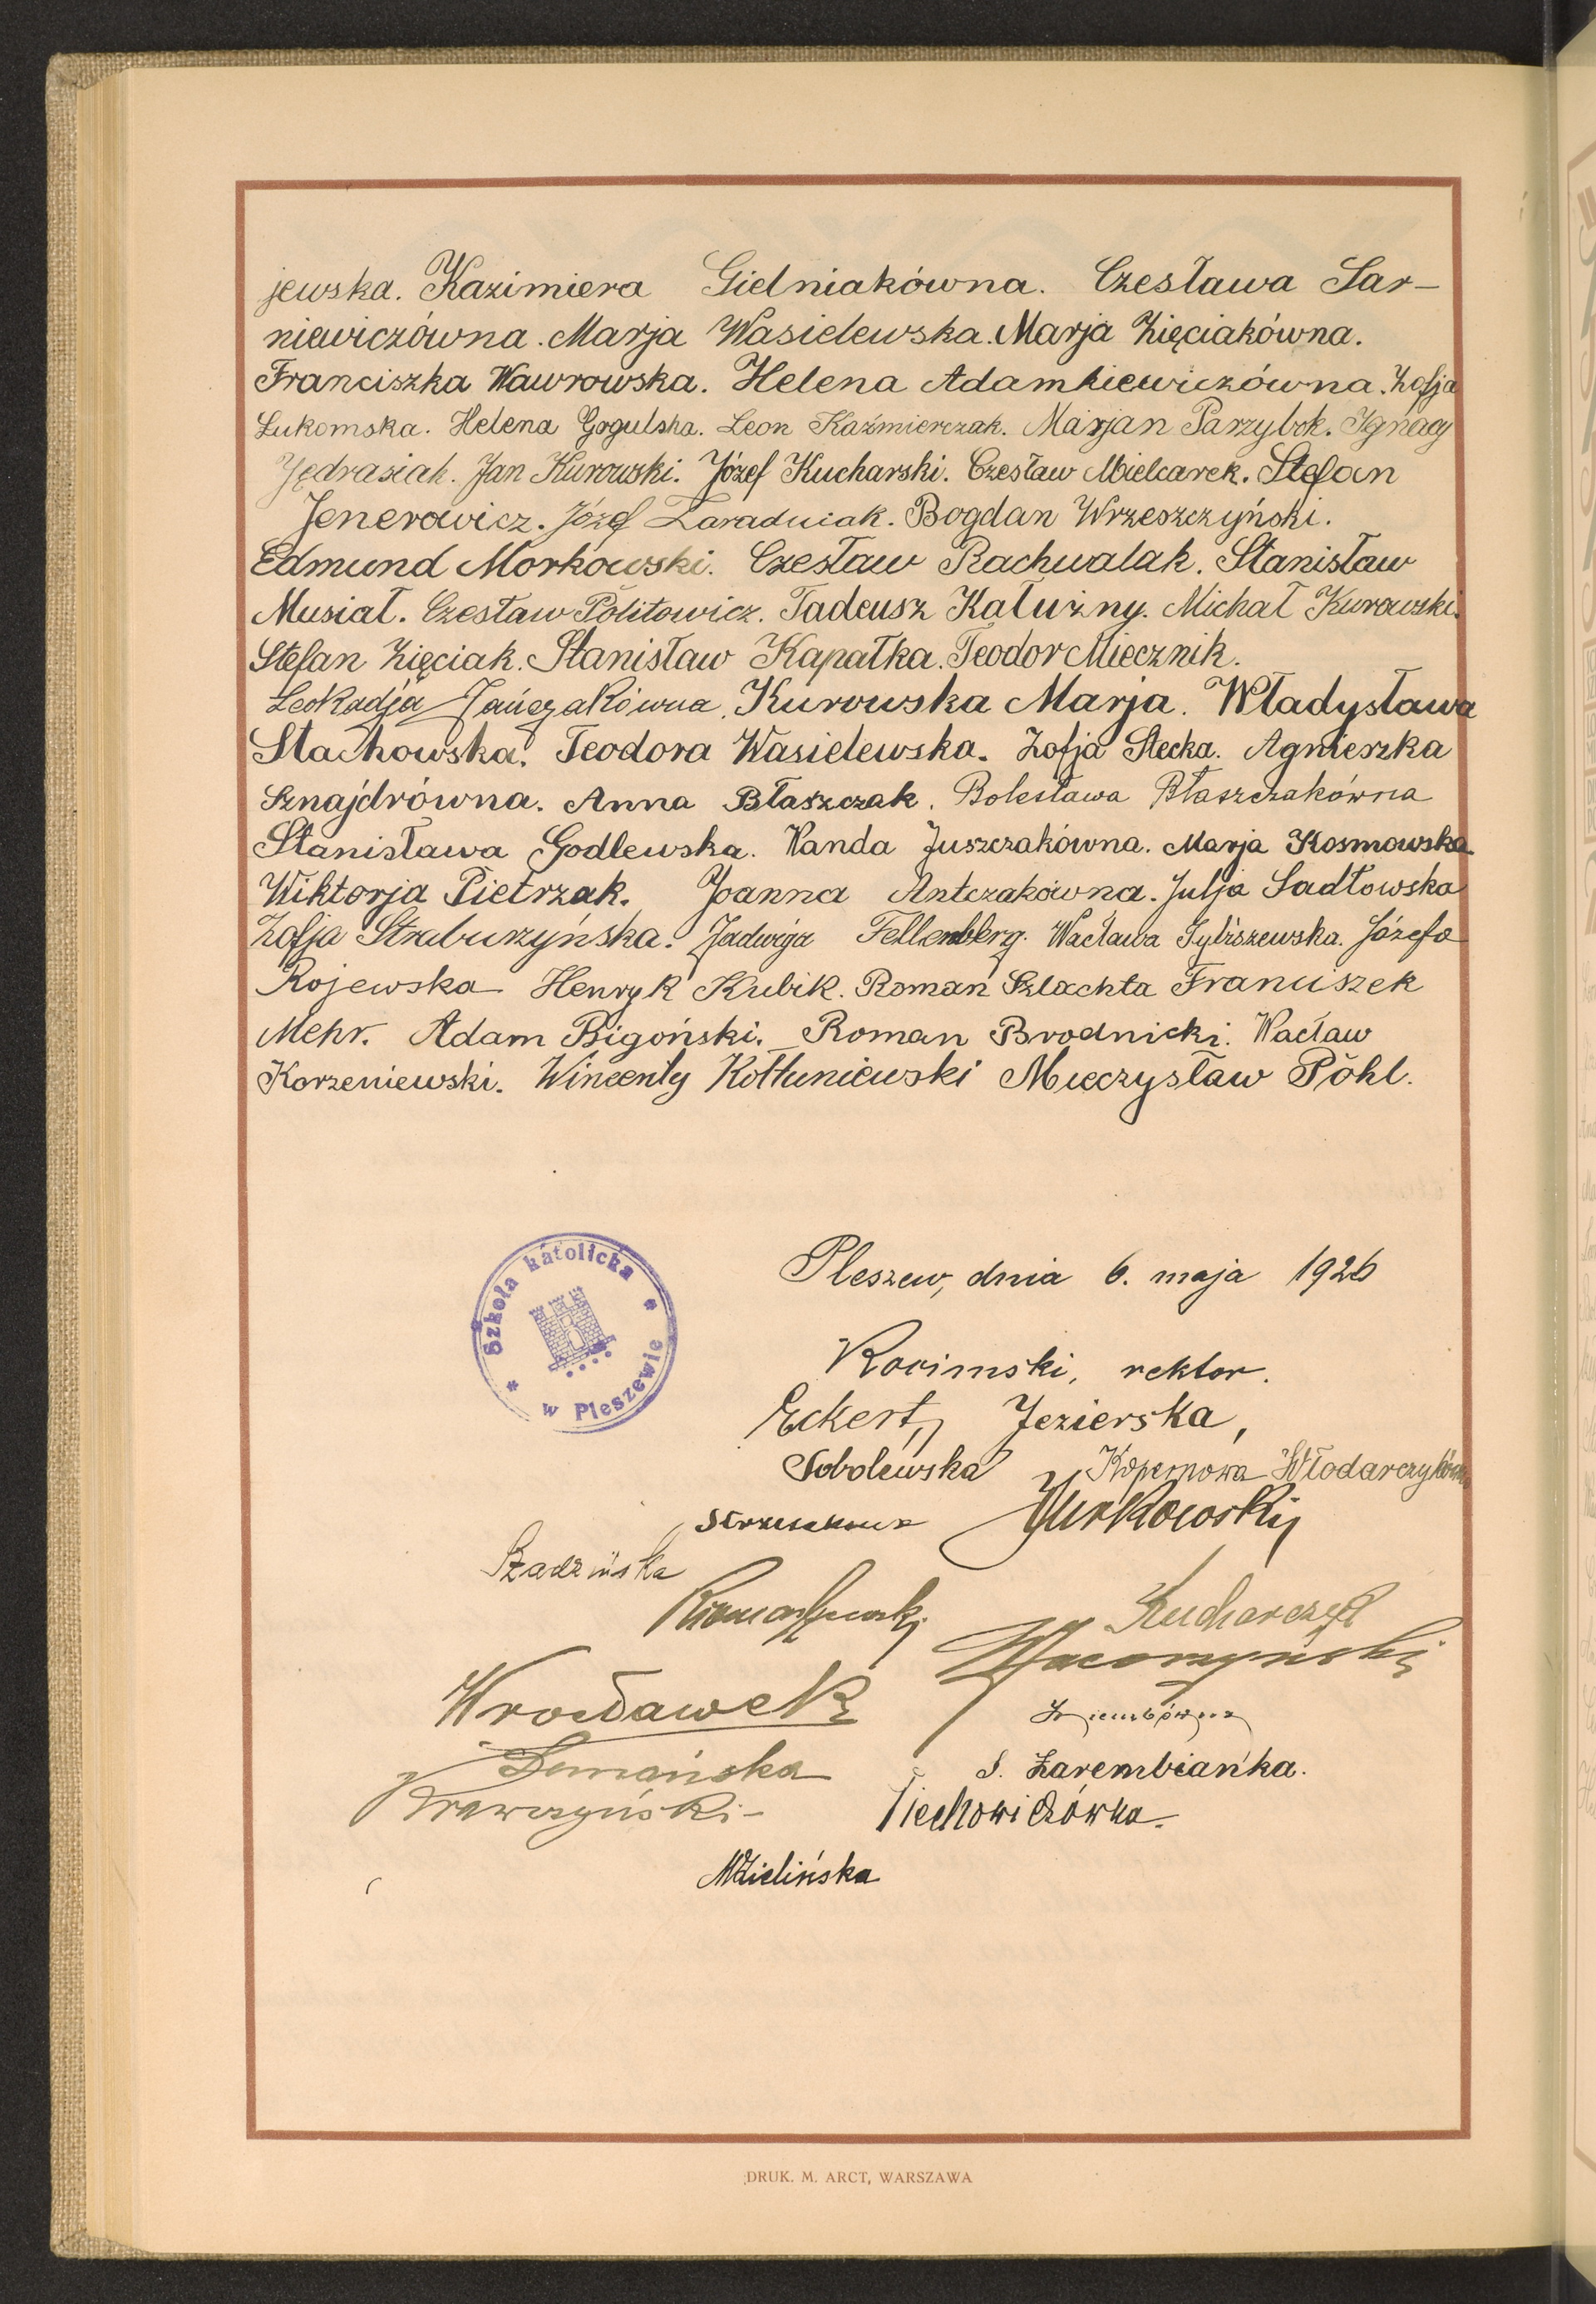 jewska. Kazimiera Gielniakówna. Czesława Sar-
niewiczówna. Marja Wasielewska. Marja Zięciakówna.
Franciszka Wawrowska. Helena Adamkiewiczówna. Zofja
Łukomska. Helena Gogulska. Leon Kaźmierczak. Marjan Parzybok. Ignacy
Jędrasiak. Jan Kurowski. Józef Kucharski. Czesław Mielcarek. Stefan
Jenerowicz. Józef Taradniak. Bogdan Wrzeszczyński.
Edmund Morkowski. Czesław Rachwalak. Stanisław
Musiał. Czesław Politowicz. Tadeusz Kałużny. Michał Kurowski.
Stefan Zięciak. Stanisław Kapałka. Teodor Miecznik.
Leokadja Jańczakówna. Kurowska Marja. Władysława
Stachowska. Teodora Wasielewska. Zofja Stecka. Agnieszka
Sznajdrówna. Anna Błaszczak. Bolesława Błaszczakówna
Stanisława Godlewska. Wanda Juszczakówna. Marja Kosmowska
Wiktorja Pietrzak. Joanna Antczakówna. Julja Sadłowska
Zofja Straburzyńska. Jadwiga Fellenberg. Wacława Józefa
Rojewska Henryk Kubik. Roman Szlachta Franciszek
Mehr. Adam Bigoński. Roman Brodnicki. Wacław
Korzeniewski. Wincenty Kołtuniewski Mieczysław Pohl.
Szkoła katolicka
w Pleszewie
Pleszew, dnia 6. maja 1926
Rocimski, rektor.
Eckert, Jezierska,
Sobolewska Kopernowa Włodarczykówna
Jurkowski
Szadzińska
Kucharczyk
Wrocławek
Lemańska S. Zarembianka.
Krawczyński Piechowiczówna.
MZielińska
DRUK. M. ARCT, WARSZAWA